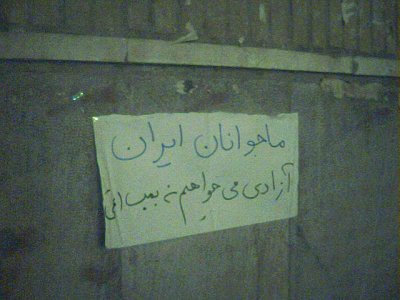 ما جوانان ایران
آزادی می خواهیم نه بمب اتمی